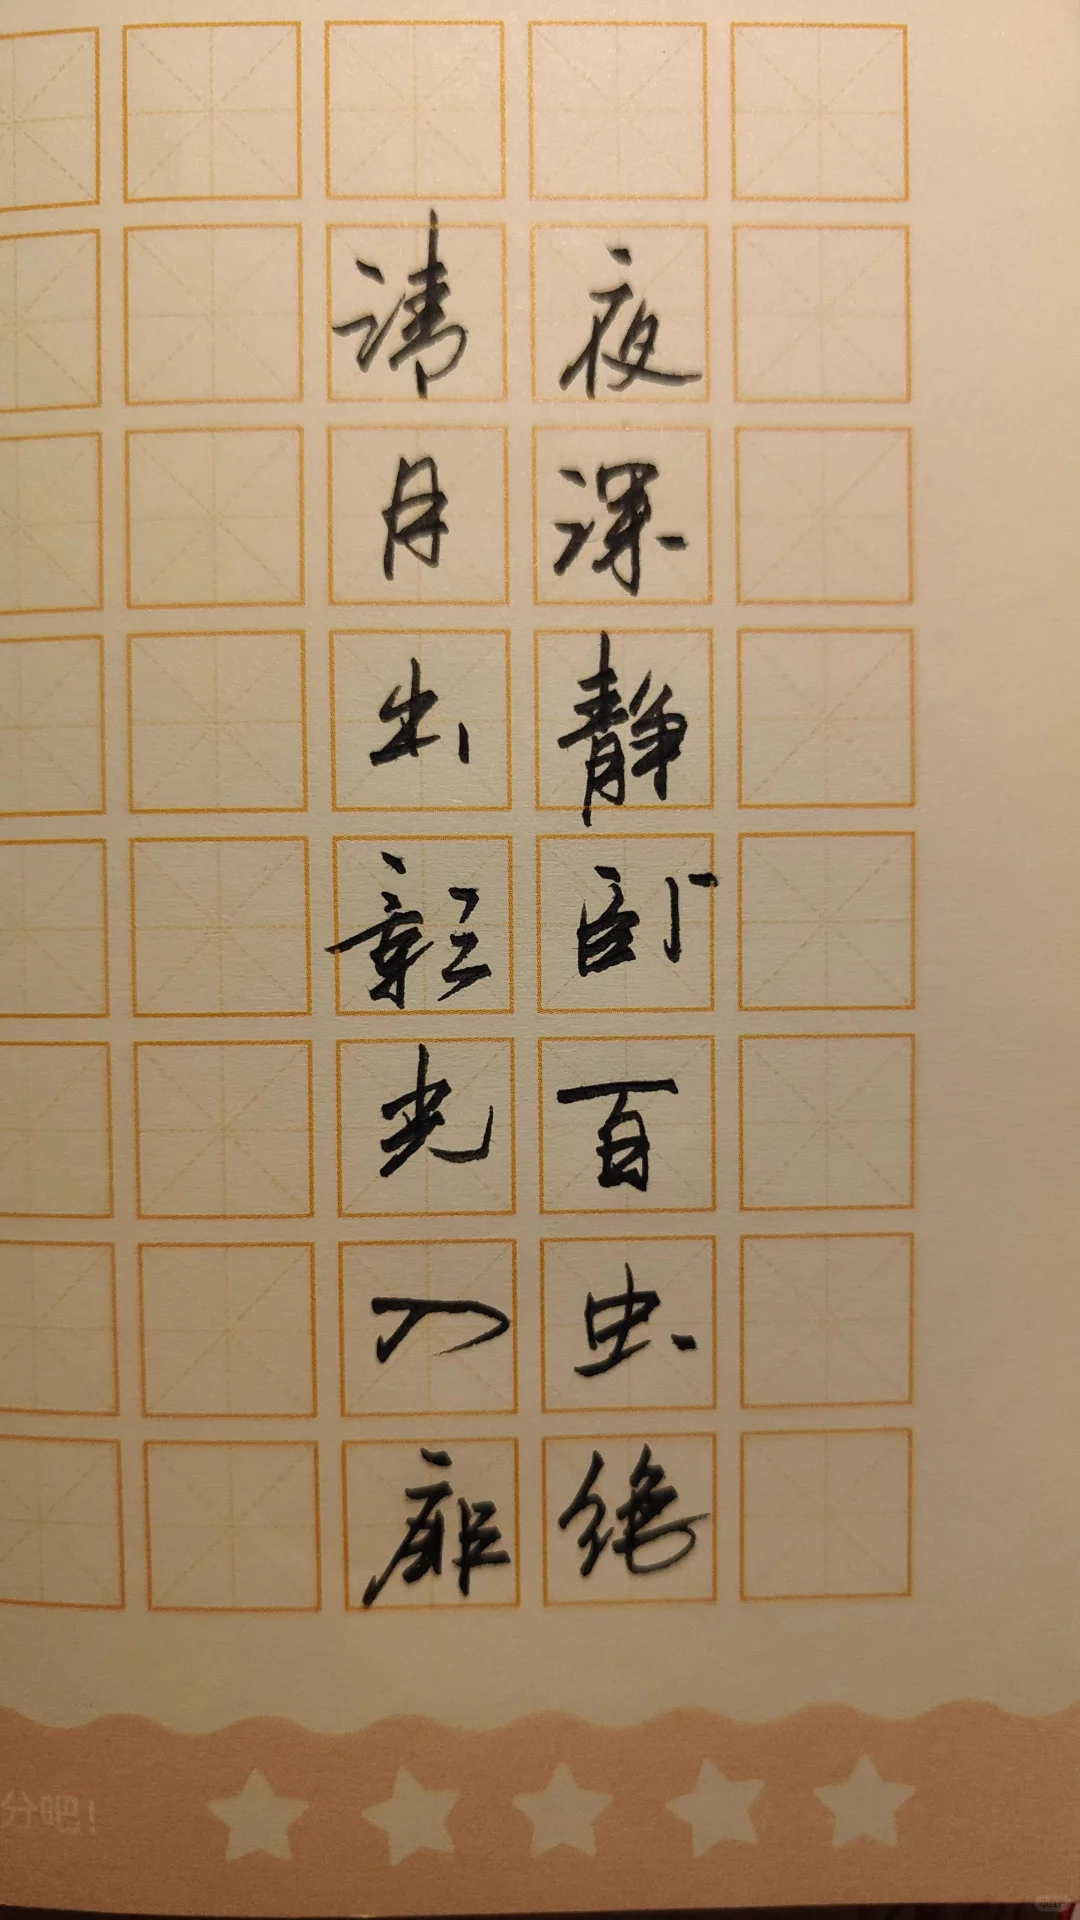 夜深静卧百虫绝
清月出彰光入扉